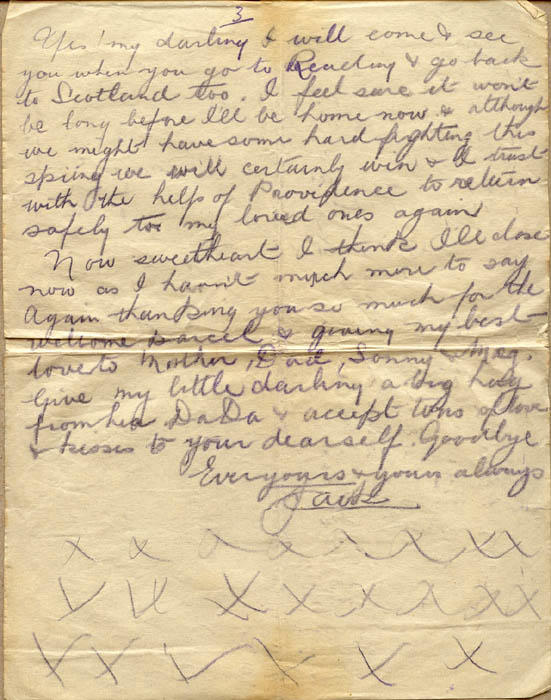 3
Yes! my darling I will come & see
you when you go to Reading & go back
to Scotland too. I feel sure it won't
be long before I'll be home now & although
we might have some hard fighting this
spring we will certainly win & I trust
with the help of Providence to return
safely to my loved ones again
Now sweetheart I think I'll close
now as I havn't much more to say
Again thanking you so much for the
welcome parcel & giving my best
love to Mother, Dad, Sonny & Meg.
Give my little darling a big hug
from her DaDa & accept tons of love
& kisses to your dearself. Goodbye
Ever yours & yours always
Jack
x x x x x x x x
x x x x x x x x
x x x x x x